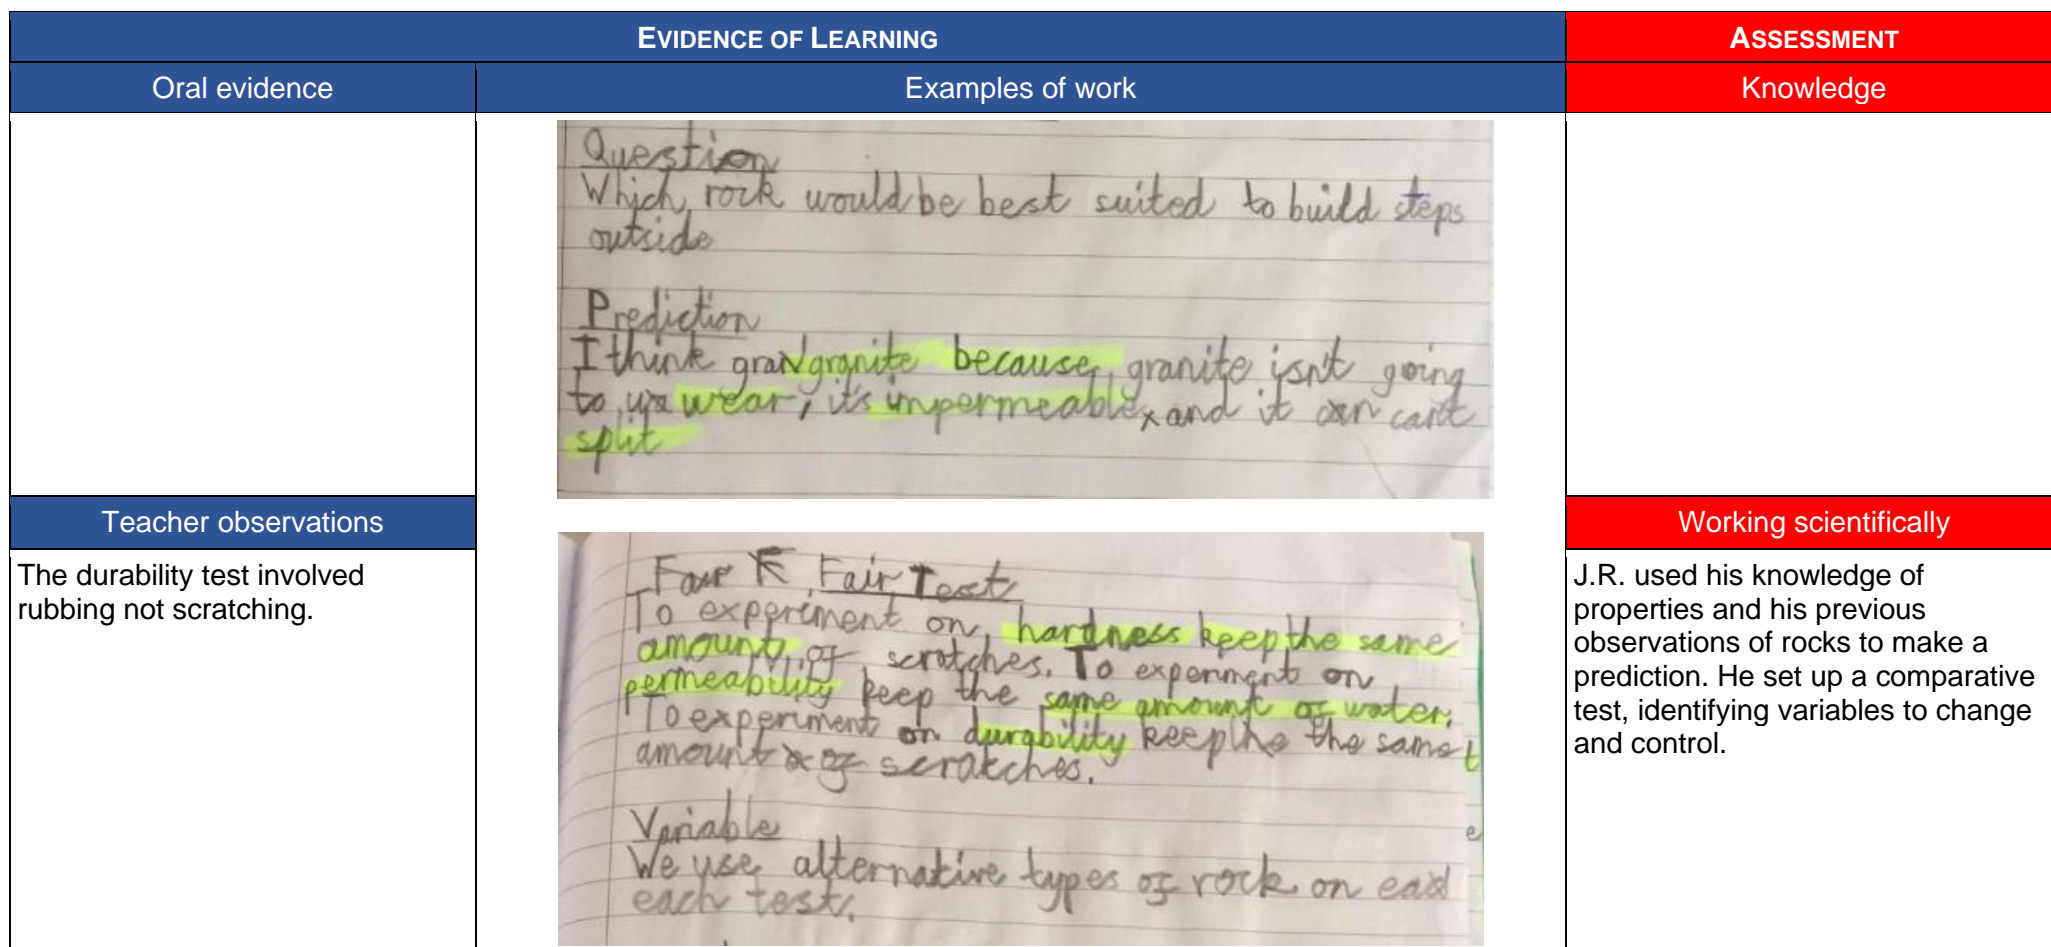 EVIDENCE OF LEARNING
ASSESSMENT
Oral evidence
Examples of work
Knowledge
Question
Which rock would be best suited to build steps
outside
Prediction
I think gran granite because granite isn't going
to wear, it's impermeable and it can can't
split
Teacher observations
The durability test involved
rubbing not scratching.
Fair Test
To experiment on hardness keep the same
amount of scratches. To experiment on
permeability keep the same amount of water.
To experiment on durability keep the the same
amount of scratches.
Variable
We use alternative types of rock on
each test.
Working scientifically
J.R. used his knowledge of
properties and his previous
observations of rocks to make a
prediction. He set up a comparative
test, identifying variables to change
and control.